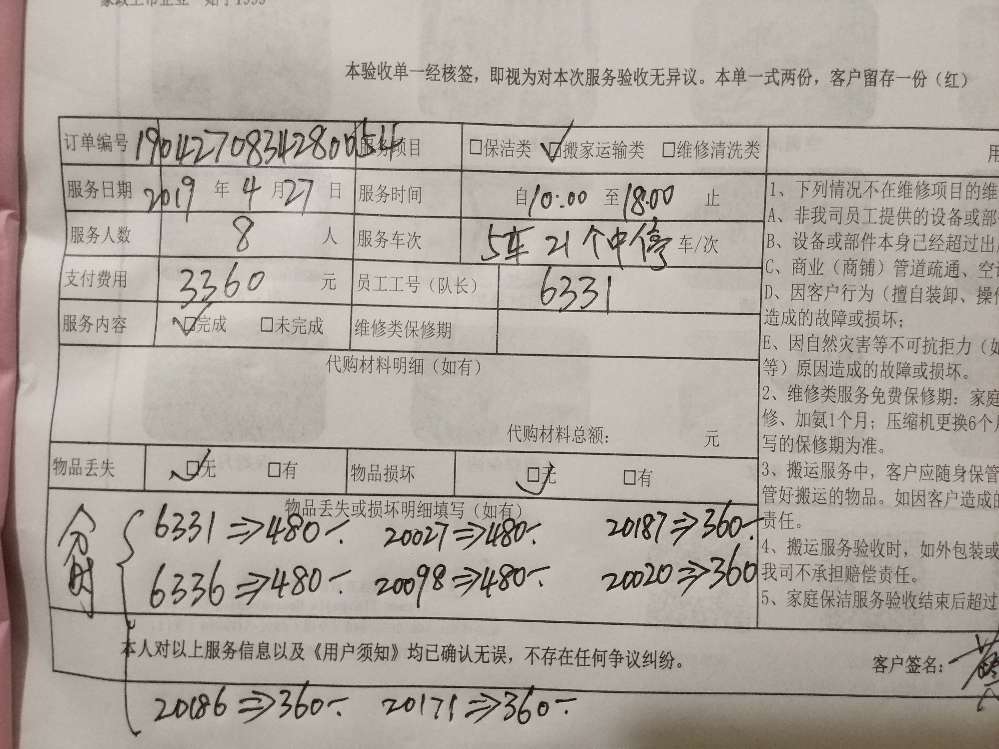 家政上市企业 始于1999
本验收单一经核签，即视为对本次服务验收无异议。本单一式两份，客户留存一份（红）
订单编号 19042708342800054 服务项目 □保洁类 ☑搬家运输类 □维修清洗类
服务日期 2019 年 4 月 27 日 服务时间 自 10:00 至 18:00 止
服务人数 8 人 服务车次 5车 21个中停 车/次
支付费用 3360 元 员工工号（队长） 6331
服务内容 ☑完成 □未完成 维修类保修期
代购材料明细（如有）
代购材料总额： 元
物品丢失 ☑无 □有 物品损坏 ☑无 □有
物品丢失或损坏明细填写（如有）
6331⇒480- 20027⇒480- 20187⇒360-
6336⇒480- 20098⇒480- 20020⇒360
本人对以上服务信息以及《用户须知》均已确认无误，不存在任何争议纠纷。
客户签名：
20186⇒360- 20171⇒360-
用
1、下列情况不在维修项目的维
A、非我司员工提供的设备或部
B、设备或部件本身已经超过出
C、商业（商铺）管道疏通、空
D、因客户行为（擅自装卸、操作
造成的故障或损坏；
E、因自然灾害等不可抗拒力（如
等）原因造成的故障或损坏。
2、维修类服务免费保修期：家庭
修、加氨1个月；压缩机更换6个月
写的保修期为准。
3、搬运服务中，客户应随身保管
管好搬运的物品。如因客户造成的
责任。
4、搬运服务验收时，如外包装或
我司不承担赔偿责任。
5、家庭保洁服务验收结束后超过